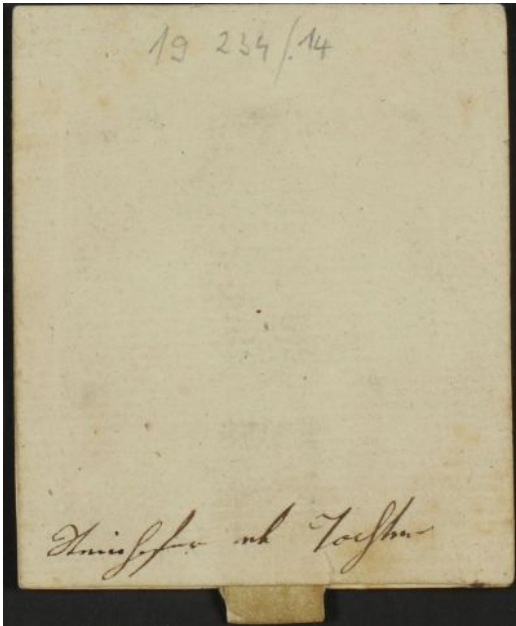 19 234/.14
Steinhofer u Tochter